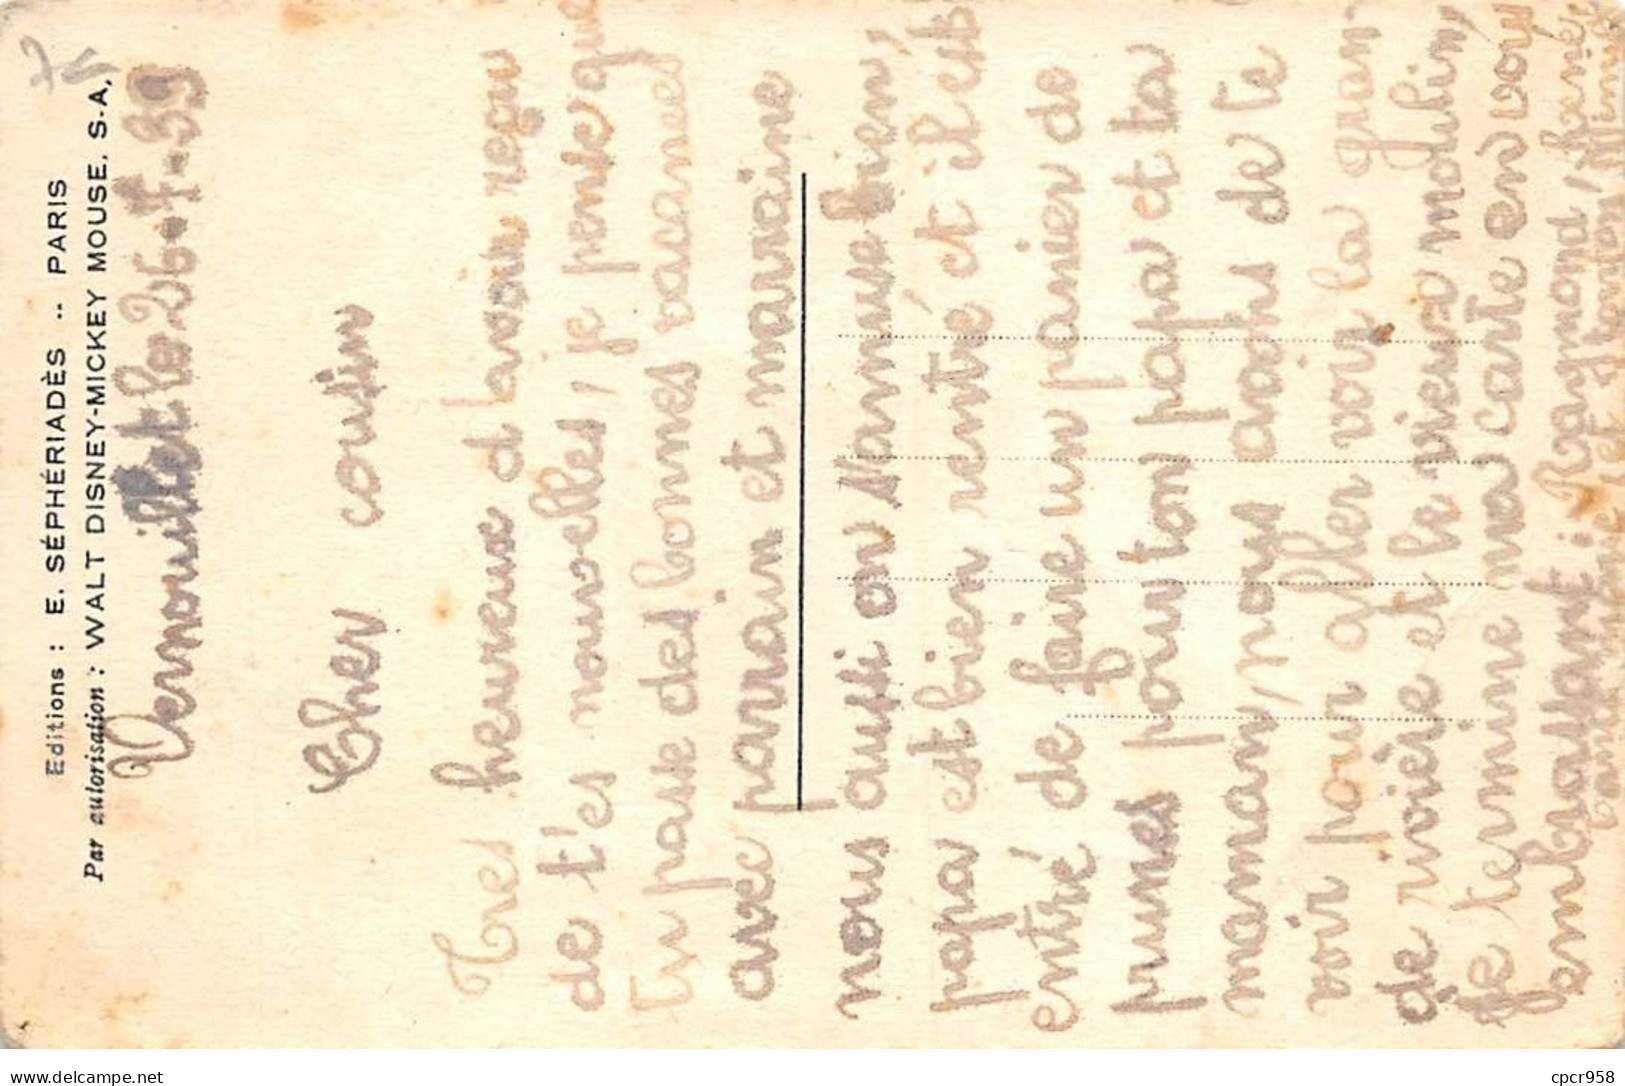 Editions : E. SÉPHÉRIADÈS -- PARIS
Par autorisation : WALT DISNEY-MICKEY MOUSE, S.A,
Vernouillet le 26-7-39
Cher cousin
Tres heureux d'avoir reçu
de t'es nouvelles, je pense que
tu passe des bonnes vacances
avec parrain et marraine
nous aussi on s'amuse bien,
papa est bien rentré et il est
entré de faire un panier de
prunes pour ton papa et ta
maman, nous avons de te
voir pour aller voir la gran
de rivière et le vieux moulin,
Je termine ma carte en vous
embrassant : Raymond, Rene,
et tonton, Mimi
delcampe.net
cpcr958